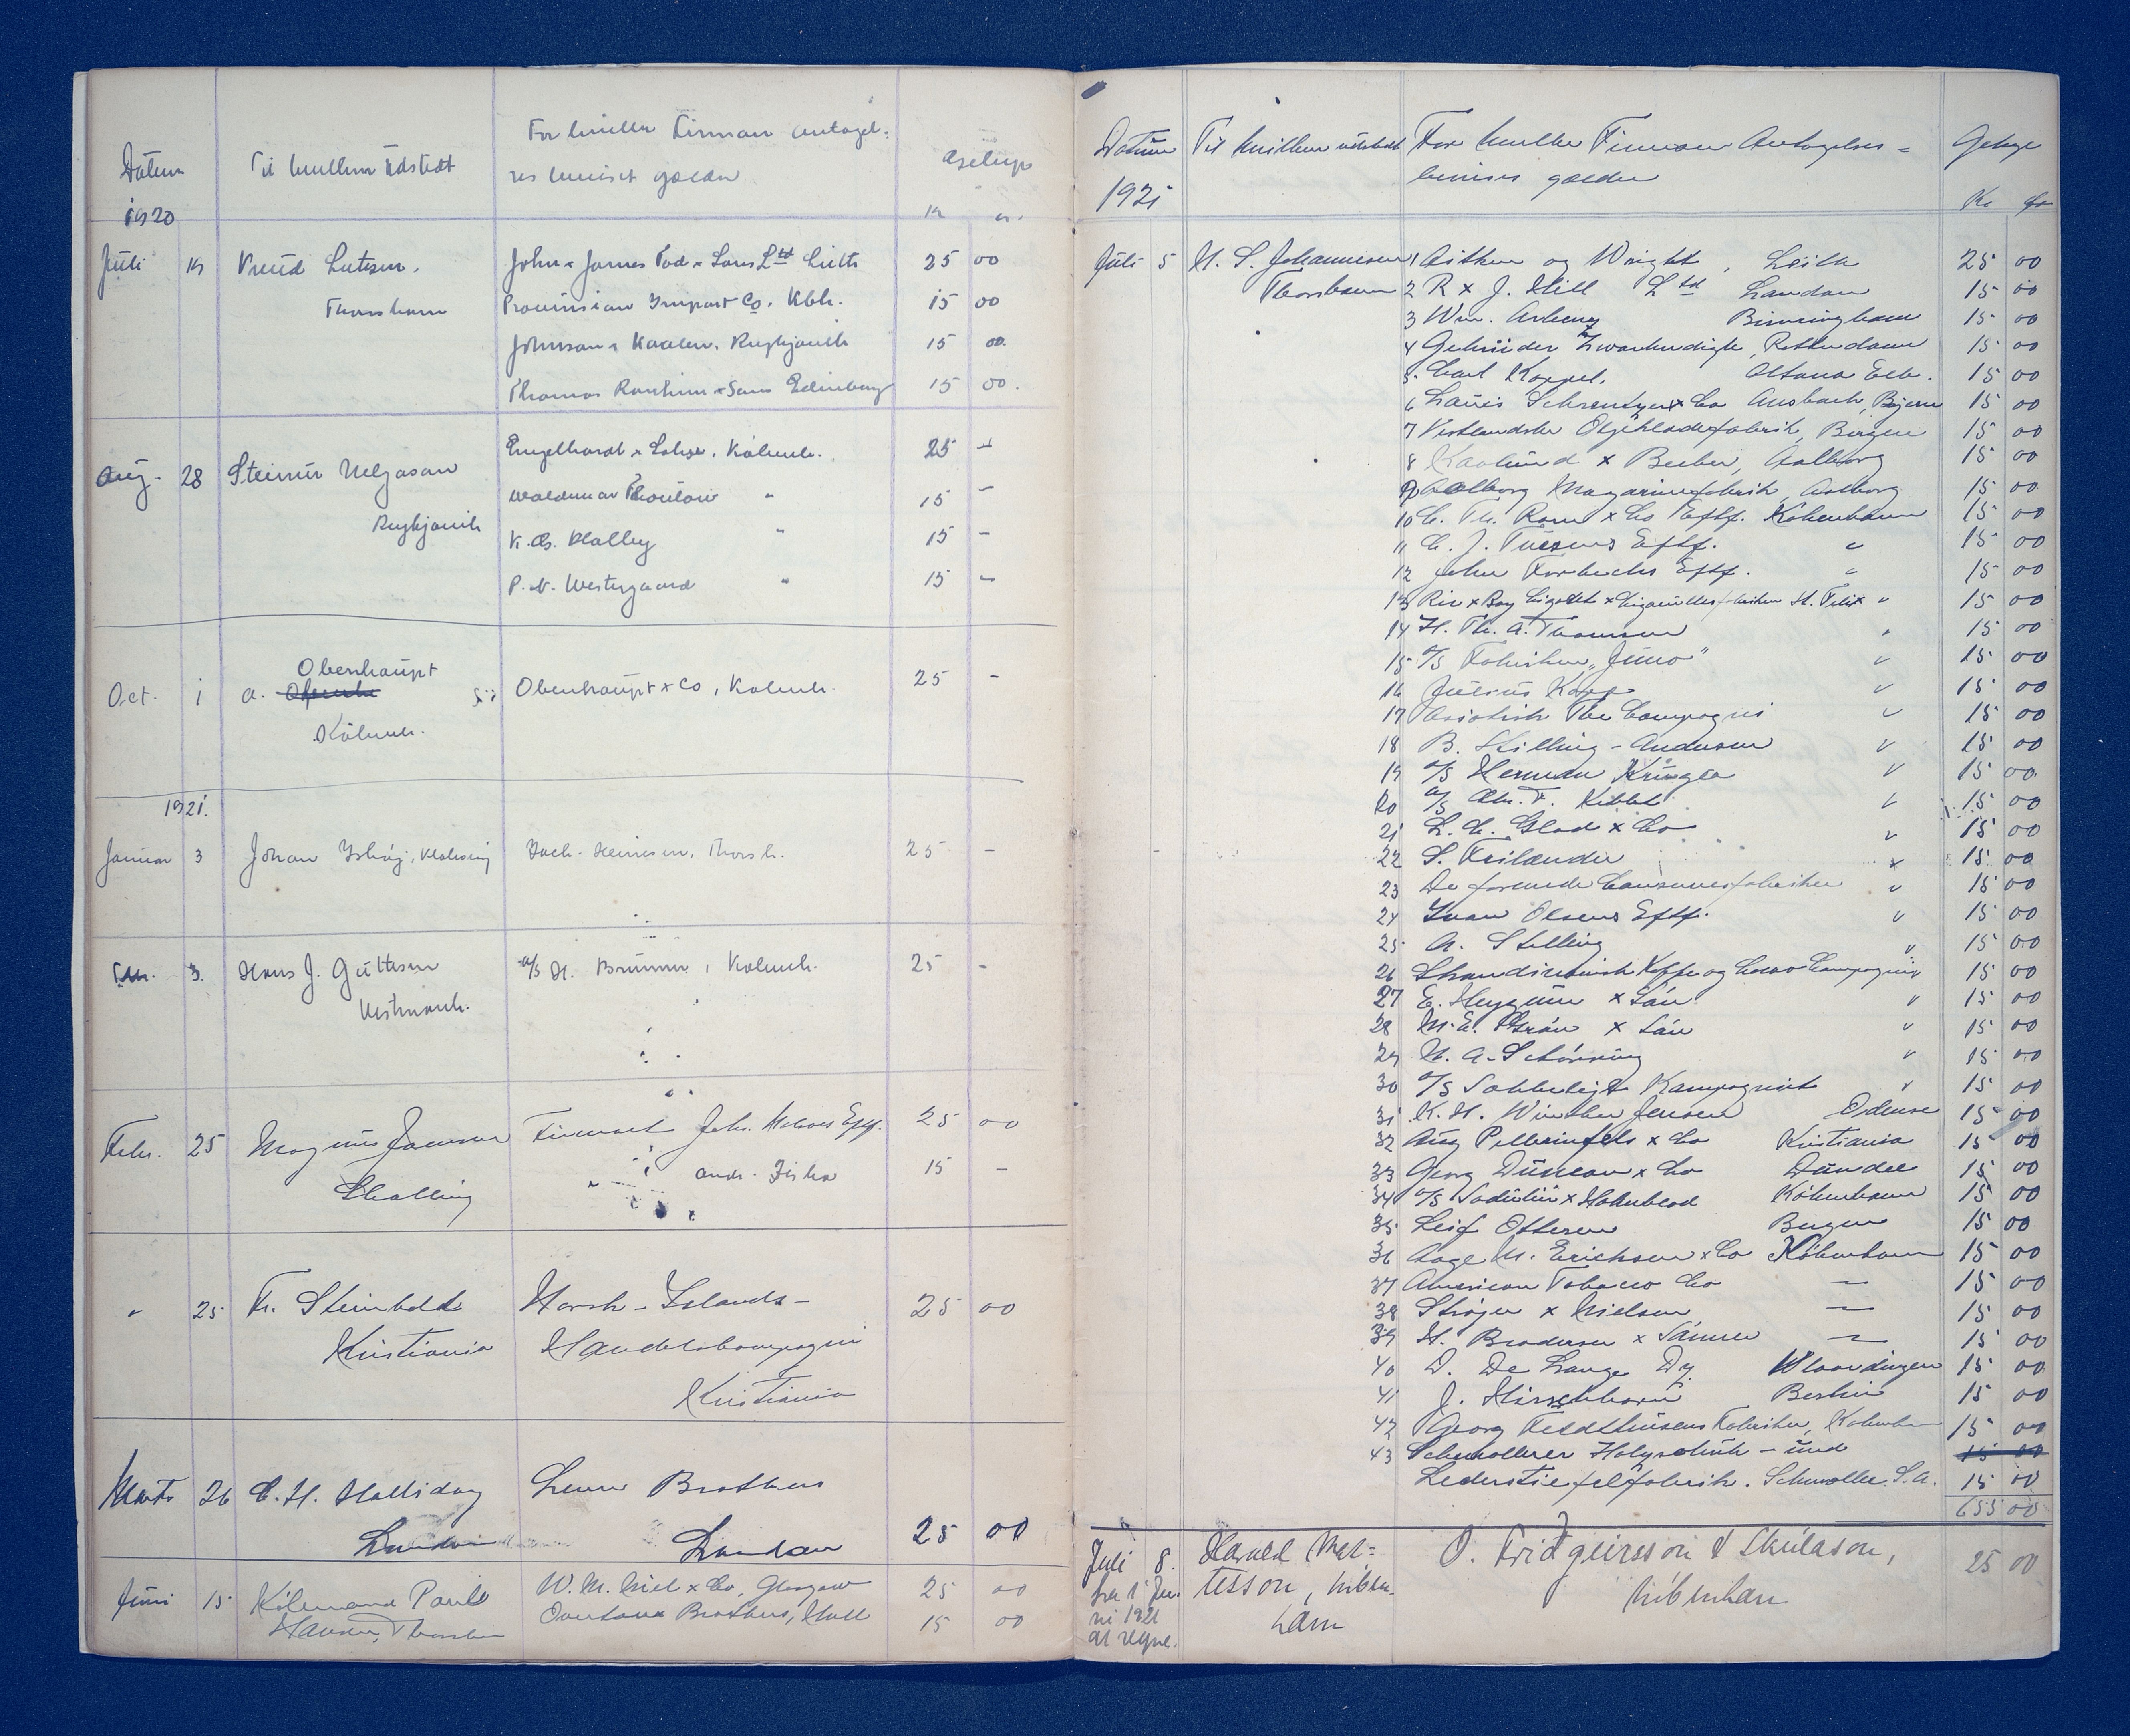 Datum
1920
Til hvilken Udstedt
For hvilke Firmaer Antagel=
ses beviset gælder
Gebyr
Kr
Juli 14 Knud Lützen, John & James Tod & Sons Ltd Leith 25 00
Thorshavn Provision Import Co. Kbh. 15 00
Johnson & Kaaber, Reykjavik 15 00
Thomas & Sons Edinburg 15 00
Aug. 28 Steinur Helgason Engelhardt & Lohse, Københ. 25 -
Waldemar Thoulow " 15 -
Reykjavik K. B. Halley " 15 -
P. N. Westergaard " 15 -
Oct. 1 A. Obenhaupt Obenhaupt & Co, Københ. 25 -
Københ.
1921.
Januar 3 Johan Ishøj, Klaksvig Zach. Heinesen, Thorsh. 25 -
3. Hans J. Guttesen A/S H. Brunn, Københ. 25 -
Vestmanh.
Febr. 25 Magnus Jacobsen Firmaet Johs. Eff. 25 00
Skalling " Andr. Fisker 15 -
" 25 Fr. Steinholt Norsk-Islands- 25 00
Kristiania Handelskompagni
Kristiania
Marts 26 C. H. Halliday Lever Brothers
London London 25 00
Juni 15 Købmand Poul W. M. & Co, Glasgow 25 00
Hansen, Thorshavn Brothers, Hull 15 00
Datum Til hvilken udstedt For hvilke Firmaer Antagelses=
bevises gælder Gebyr
1921 Kr
Juli 5 H. S. Johannesen 1 Aitken og Wright, Leith 25 00
Thorshavn 2 R & J. Hill Ltd London 15 00
3 Wm. Birmingham 15 00
4 Gebrüder Zwarbendijk, Rotterdam 15 00
5 Carl Koppel, Altona Elb. 15 00
6 Louis & Co Ansbach, Bayern 15 00
7 Vestlandske Bergen 15 00
8 & Beiber, Aalborg 15 00
9 Aalborg Magarinefabrik, Aalborg 15 00
10 C. Th. Rom & Co Eftf. København 15 00
11 C. J. Eftf. " 15 00
12 John Eftf. " 15 00
13 St. Felix " 15 00
14 H. Th. A. Thomsen " 15 00
15 A/S Fabriken "Juno" " 15 00
16 Julius Kopp " 15 00
17 Asiatisk The Compagni " 15 00
18 B. Stilling-Andersen " 15 00
19 A/S Herman Krüger " 15 00
20 A/S Chr. F. " 15 00
21 L. C. Glad & Co " 15 00
22 S. Frilander " 15 00
23 De forenede Conservesfabriker " 15 00
24 Ivan Olsens Eftf. " 15 00
25 A. Stelling " 15 00
26 Skandinavisk Kaffe og Cacao Compagni " 15 00
27 E. Heygum & Søn " 15 00
28 M. E. Grøn & Søn " 15 00
29 H. A. Schønning " 15 00
30 A/S Kompagniet " 15 00
31 K. H. Winther Jensen Odense 15 00
32 Aug Pellerinfils & Co Kristiania 15 00
33 Georg Duncan & Co Dundee 15 00
34 A/S Sadolin & Holmblad København 15 00
35 Leif Ottesen Bergen 15 00
36 Aage M. Erichsen & Co København 15 00
37 American Tobacco Co — 15 00
38 Strøjer & Nielsen — 15 00
39 H. Brodersen & Sønner — 15 00
40 D. De Lange Dz. Vlaardingen 15 00
41 J. Hirschhorn Berlin 15 00
42 Georg Feldthusens Fabriker, Københ 15 00
43 Schmollner Holzschuh- und 15 00
Lederstiefelfabrik. Schmolle. S.A. 15 00
655 00
Juli 8. Harald Mat= O. Fridgeirsson & Skúlason, 25 00
fra 1 Ju= tesson, Köben= Köbenhavn
ni 1921 havn
at regne.